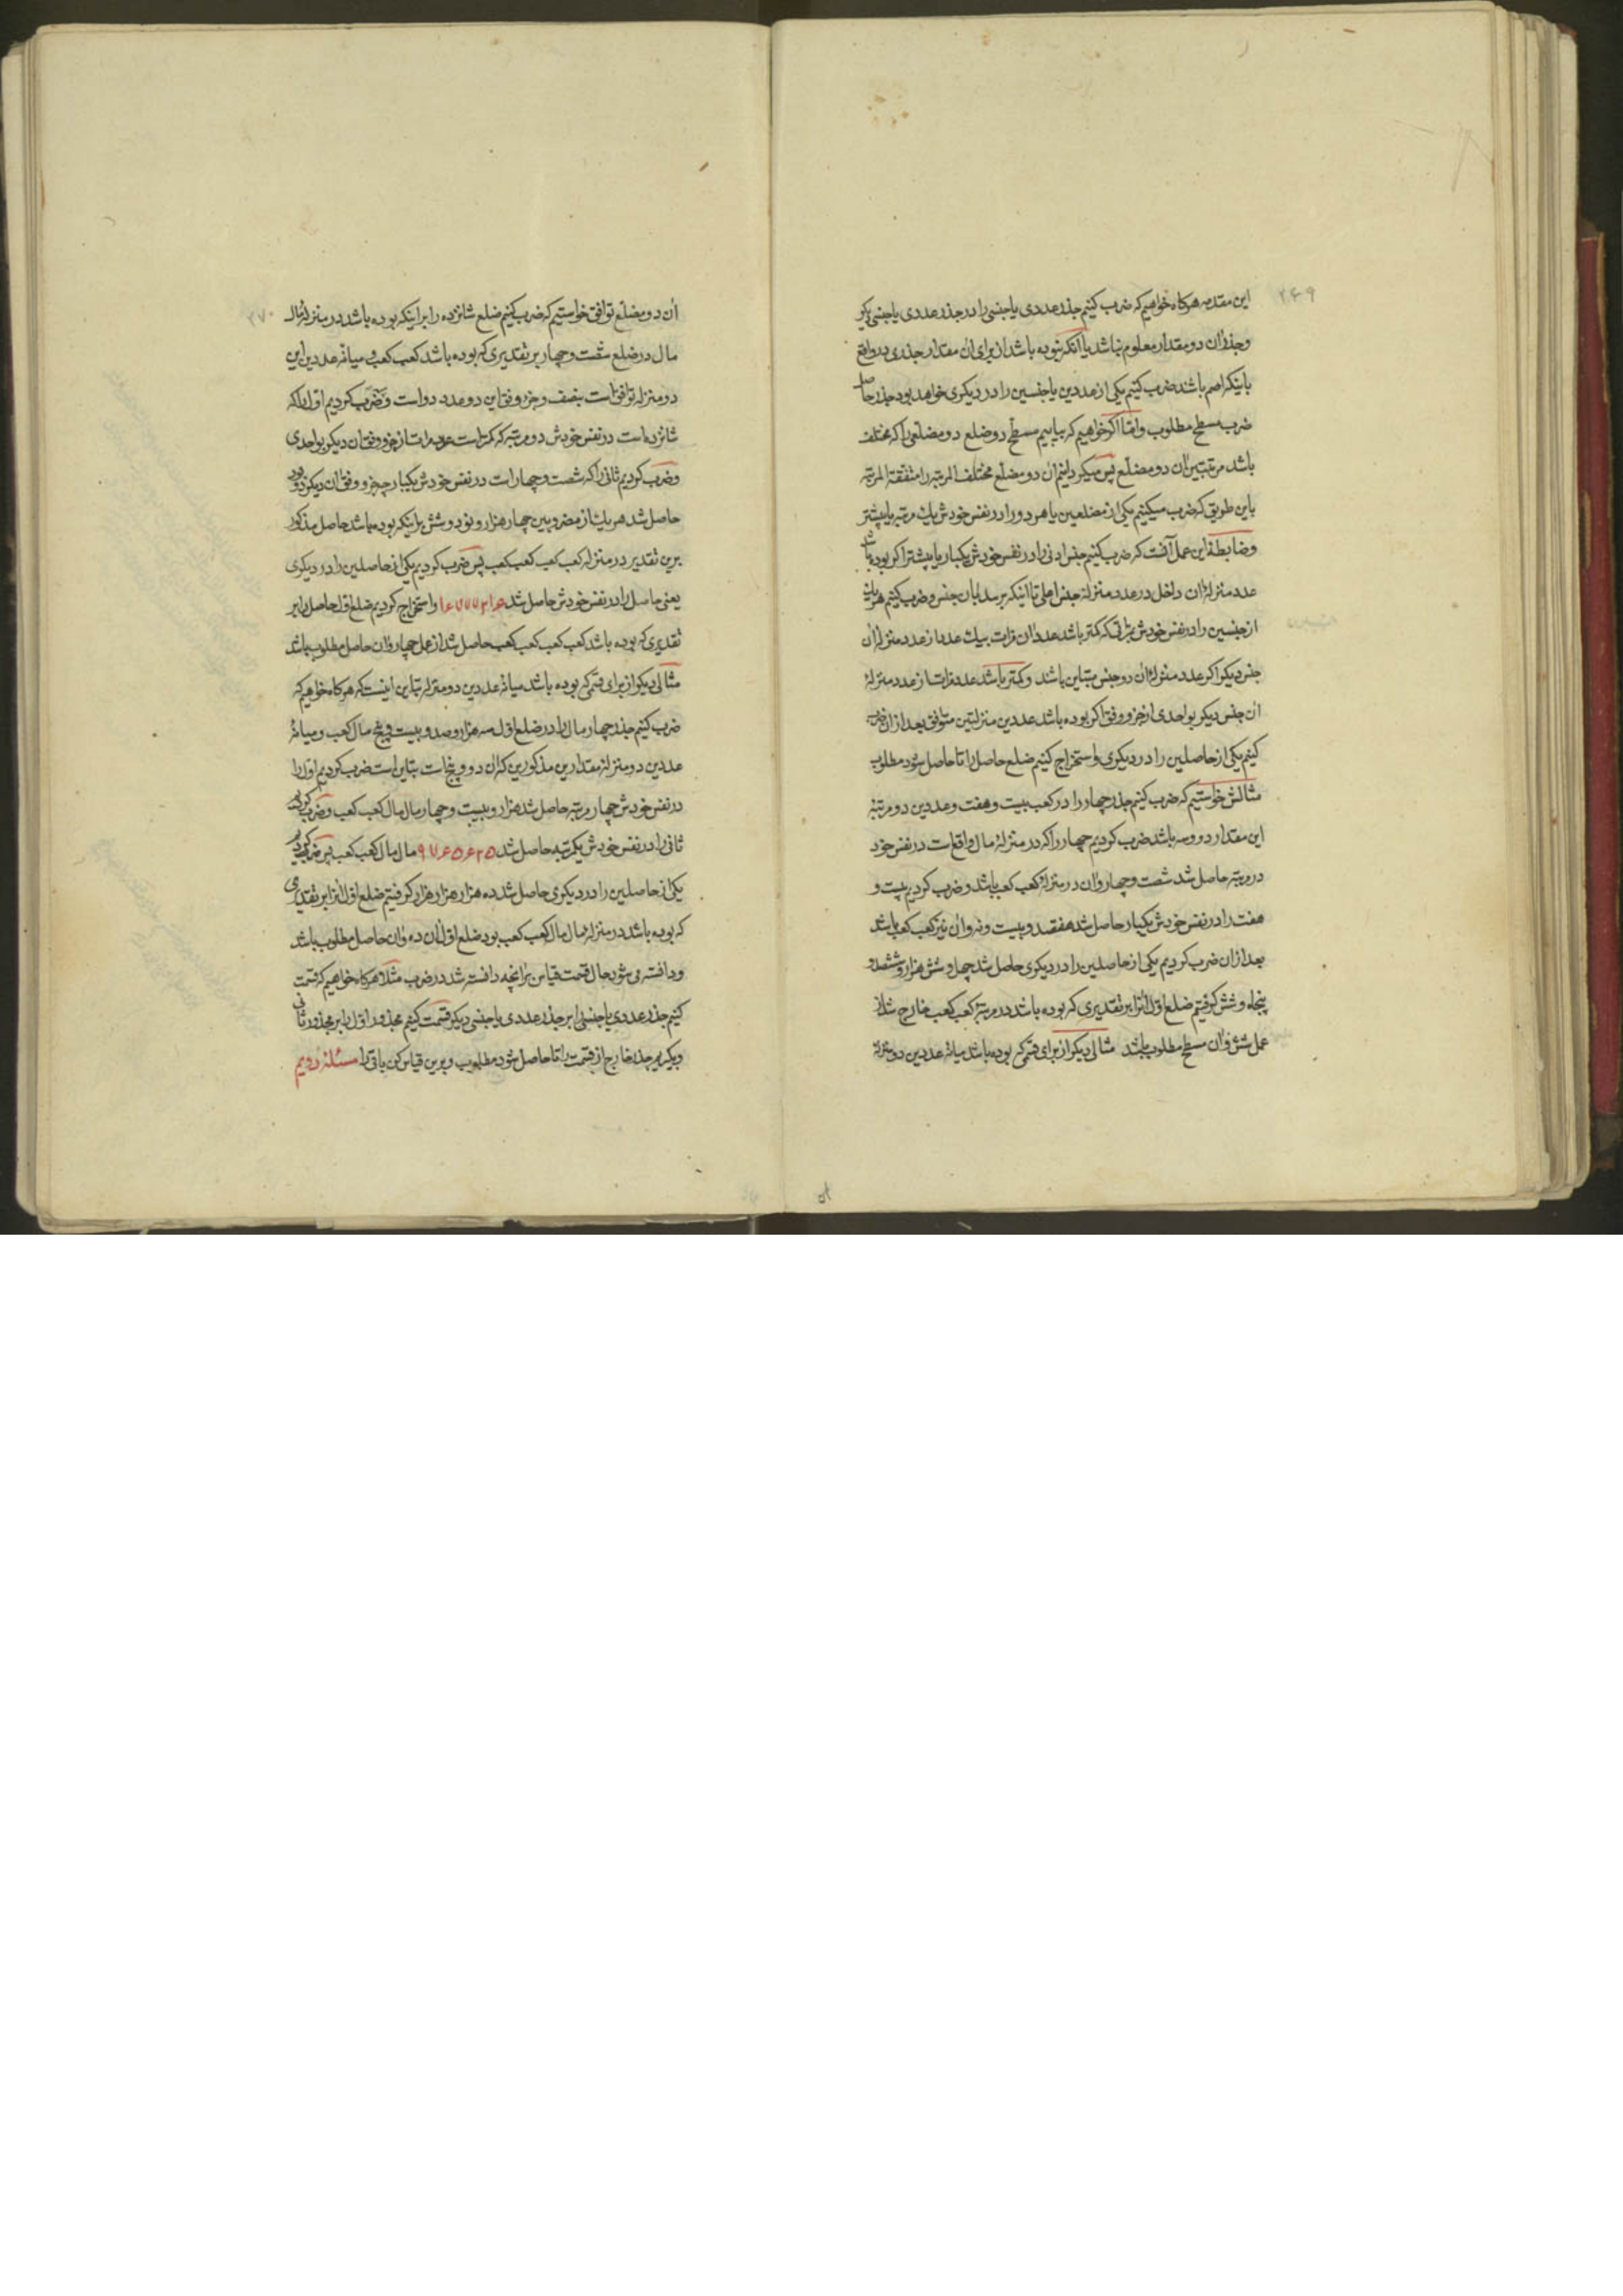 ۲۴۹
این مقدمه هرکاه خواهیم که ضرب کنیم جذر عددی یا جنسی را در جذر عددی یا جنسی دیکر
و جذر ان دو مقدار معلوم نباشد یا آنکه نبوده باشد از برای ان مقدار جذری در واقع
باینکه اصم باشد ضرب کنیم یکی از عددین یا جنسین را در دیکری خواهد بود جذر حاصل
ضرب مسطح مطلوب و امّا اکر خواهیم که بیابیم مسطّح دو ضلع دو مضلّعی را که مختلف
باشد مرتبتین ان دو مضلّع پس میکردانیم ان دو مضلّع مختلف المرتبه را متفقة المرتبه
باین طریق که ضرب میکنیم یکی از مضلعین یا هر دو را در نفس خودش یک مرتبه یا بیشتر
و ضابطهٔ این عمل آنست که ضرب کنیم جنس ادنی را در نفس خودش یکبار یا بیشتر اکر بوده باشد
عدد منزلهٔ ان داخل در عدد منزلهٔ جنس اعلی تا اینکه برسد بان جنس و ضرب کنیم هر یک
از جنسین را در نفس خودش بمرّاتی که کمتر باشد عدد ان مرّات بیک عدد از عدد منزلهٔ ان
جنس دیکر اکر عدد منزلهٔ ان دو جنس متباین باشند و کمتر باشد عدد مرّات از عدد منزلهٔ
ان جنس دیکر بواحدی از جزو وفق اکر بوده باشد عددین منزلتین متوافق بعد از ان ضرب
کنیم یکی از حاصلین را در دیکری و استخراج کنیم ضلع حاصل را تا حاصل شود مطلوب
مثالش خواستیم که ضرب کنیم جذر چهار را در کعب بیست و هفت و عددین دو مرتبهٔ
این مقدار دو و سه باشد ضرب کردیم چهار را که در منزلهٔ مال واقع است در نفس خود
دو مرتبه حاصل شد شصت و چهار و ان در منزلهٔ کعب کعب باشد و ضرب کردیم بیست و
هفت را در نفس خودش یکبار حاصل شد هفتصد و بیست و نه و ان نیز کعب کعب باشد
بعد از ان ضرب کردیم یکی از حاصلین را در دیکری حاصل شد چهل و شش هزار و ششصد و
پنجاه و شش کرفتیم ضلع اول انرا بر تقدیری که بوده باشد در مرتبهٔ کعب کعب خارج شد از
عمل شش و ان مسطح مطلوب باشد مثالی دیکر از برای قسمی که بوده باشد میانهٔ عددین دو منزلهٔ
۲۷۰
ان دو مضلّع توافق خواستیم که ضرب کنیم ضلع شانزده را بر اینکه بوده باشد در منزلهٔ مال
مال در ضلع شصت و چهار بر تقدیری که بوده باشد کعب کعب و میانهٔ عددین این
دو منزله توافق است بنصف و جزو وفق این دو عدد دو است و ضرب کردیم اول را که
شانزده است در نفس خودش دو مرتبه که کمتر است عدد مرات از جزو وفق ان دیکر بواحدی
و ضرب کردیم ثانی را که شصت و چهار است در نفس خودش یکبار چه جزو وفق ان دیکر دو بود
حاصل شد هر یک از مضروبین چهار هزار و نود و شش بر اینکه بوده باشد حاصل مذکور
برین تقدیر در منزله کعب کعب کعب کعب پس ضرب کردیم یکی از حاصلین را در دیکری
یعنی حاصل را در نفس خودش حاصل شد ۱۶۷۷۷۲۱۶ و استخراج کردیم ضلع اول حاصل را بر
تقدیری که بوده باشد کعب کعب کعب کعب حاصل شد از عمل چهار و ان حاصل مطلوب باشد
مثالی دیکر از برای قسمی که بوده باشد میانهٔ عددین دو منزله تباین اینست که هرکاه خواهیم که
ضرب کنیم جذر چهار مال را در ضلع اول سه هزار و صد و بیست و پنج مال کعب و میانهٔ
عددین دو منزلهٔ مقدارین مذکورین که ان دو و پنج است تباین است ضرب کردیم اول را
در نفس خودش چهار مرتبه حاصل شد هزار و بیست و چهار مال مال کعب کعب و ضرب کردیم
ثانی را در نفس خودش یکمرتبه حاصل شد ۹۷۶۵۶۲۵ مال مال کعب کعب پس ضرب کردیم
یکی از حاصلین را در دیکری حاصل شد ده هزار هزار هزار کرفتیم ضلع اول انرا بر تقدیری
که بوده باشد در منزلهٔ مال مال کعب کعب بود ضلع اول ان ده و ان حاصل مطلوب باشد
و دانسته می شود حال قسمت قیاس بر انچه دانسته شد در ضرب مثلا هرکاه خواهیم که قسمت
کنیم جذر عددی یا جنسی را بر جذر عددی یا جنسی دیکر قسمت کنیم مجذور اول را بر مجذور ثانی
و بکیریم جذر خارج از قسمت را تا حاصل شود مطلوب و برین قیاس کن باقی را مسئلهٔ دویم